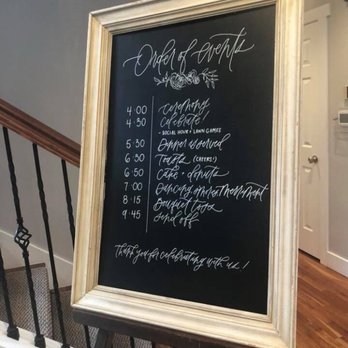 Order of events
4:00 Ceremony
4:30 Celebrate!
- SOCIAL HOUR + LAWN GAMES
5:30 Dinner is served
6:30 Toasts (CHEERS!)
6:50 Cake + donuts
7:00 Dancing + merriment
8:15 Bouquet Toss
9:45 Send off
Thank you for celebrating with us!